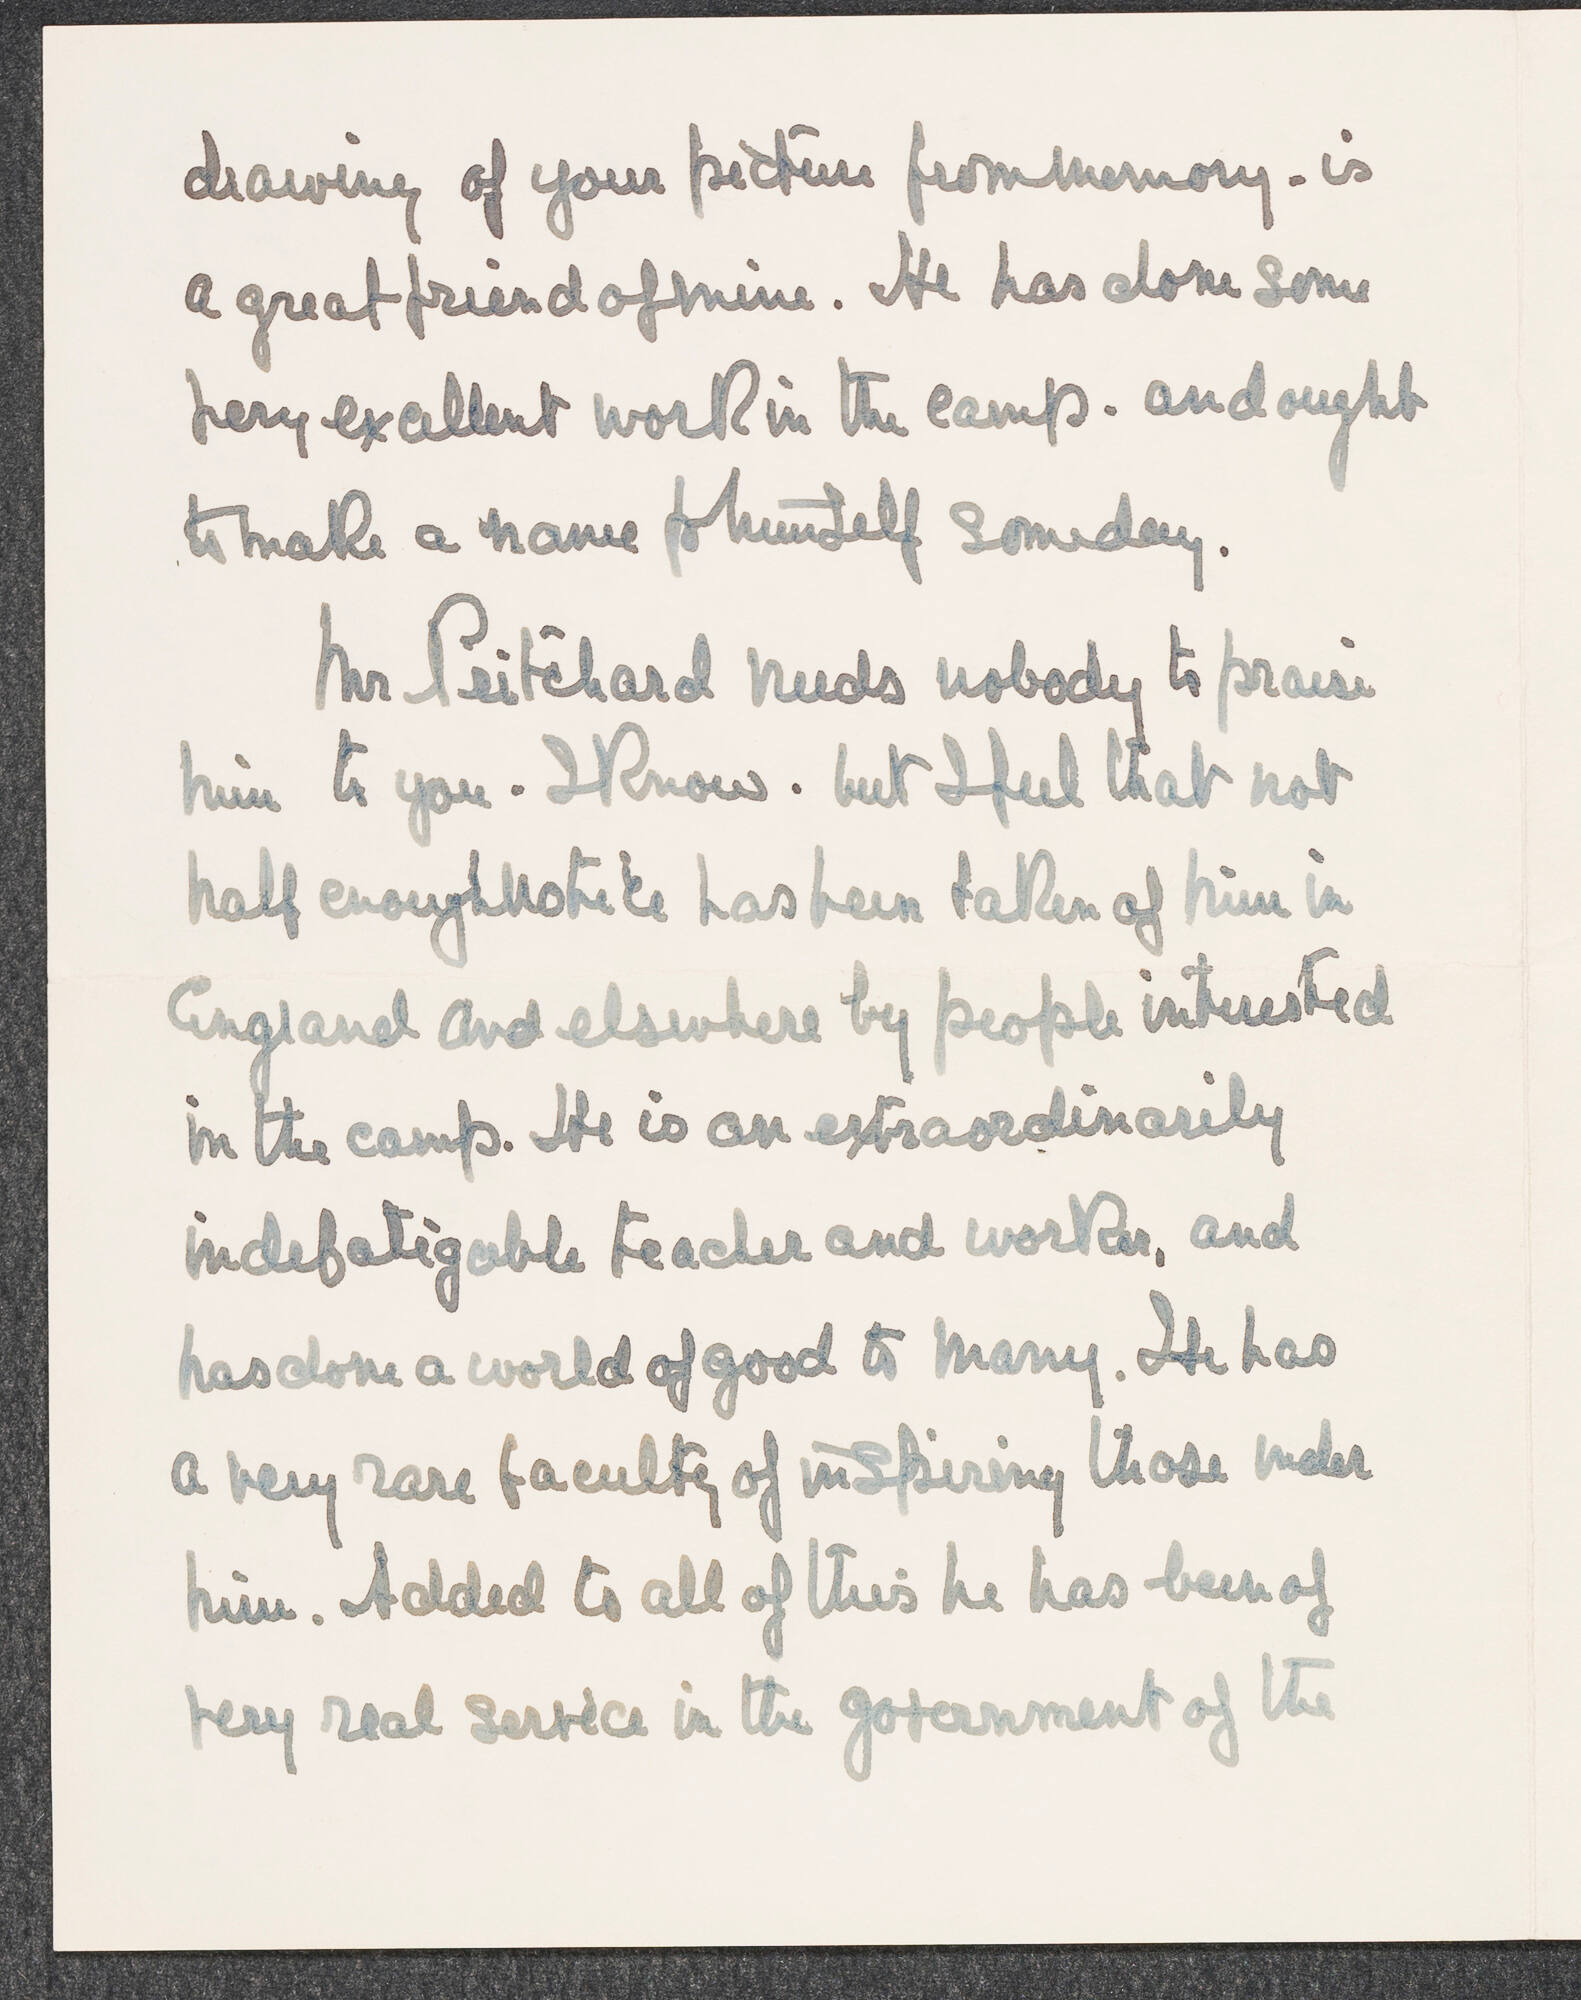 drawing of your picture from memory - is
a great friend of mine. He has done some
very excellent work in the camp. and ought
to make a name for himself someday.
Mr Pritchard needs nobody to praise
him to you - I know. but I feel that not
half enough notice has been taken of him in
England and elsewhere by people interested
in the camp. He is an extraordinarily
indefatigable teacher and worker, and
has done a world of good to many. He has
a very rare faculty of inspiring those under
him. Added to all of this he has been of
very real service in the government of the